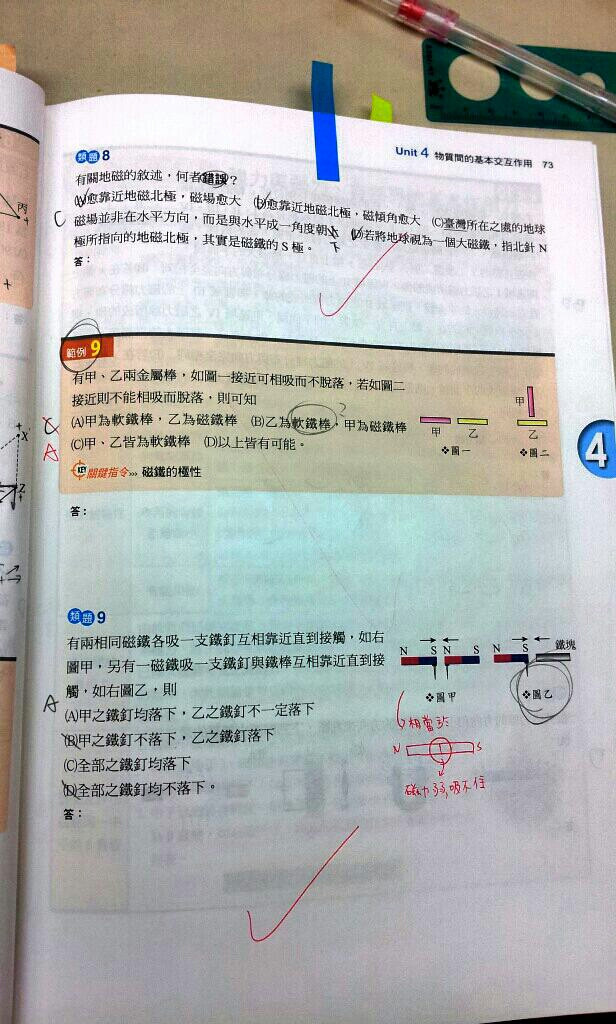 Unit 4 物質間的基本交互作用 73
類題 8
有關地磁的敘述，何者錯誤？
(A)愈靠近地磁北極，磁場愈大 (B)愈靠近地磁北極，磁傾角愈大 (C)臺灣所在之處的地球
C
磁場並非在水平方向，而是與水平成一角度朝上 (D)若將地球視為一個大磁鐵，指北針 N
下
極所指向的地磁北極，其實是磁鐵的 S 極。
答：
範例 9
有甲、乙兩金屬棒，如圖一接近可相吸而不脫落，若如圖二
接近則不能相吸而脫落，則可知
(A)甲為軟鐵棒，乙為磁鐵棒 (B)乙為軟鐵棒，甲為磁鐵棒
?
(C)甲、乙皆為軟鐵棒 (D)以上皆有可能。
A
KEY 關鍵指令>>> 磁鐵的極性
甲 乙
❖圖一
甲
乙
❖圖二
4
答：
類題 9
有兩相同磁鐵各吸一支鐵釘互相靠近直到接觸，如右
圖甲，另有一磁鐵吸一支鐵釘與鐵棒互相靠近直到接
觸，如右圖乙，則
A
(A)甲之鐵釘均落下，乙之鐵釘不一定落下
(B)甲之鐵釘不落下，乙之鐵釘落下
(C)全部之鐵釘均落下
(D)全部之鐵釘均不落下。
答：
N S N S N S 鐵塊
❖圖甲 ❖圖乙
相當於
N S
磁力弱,吸不住
丙